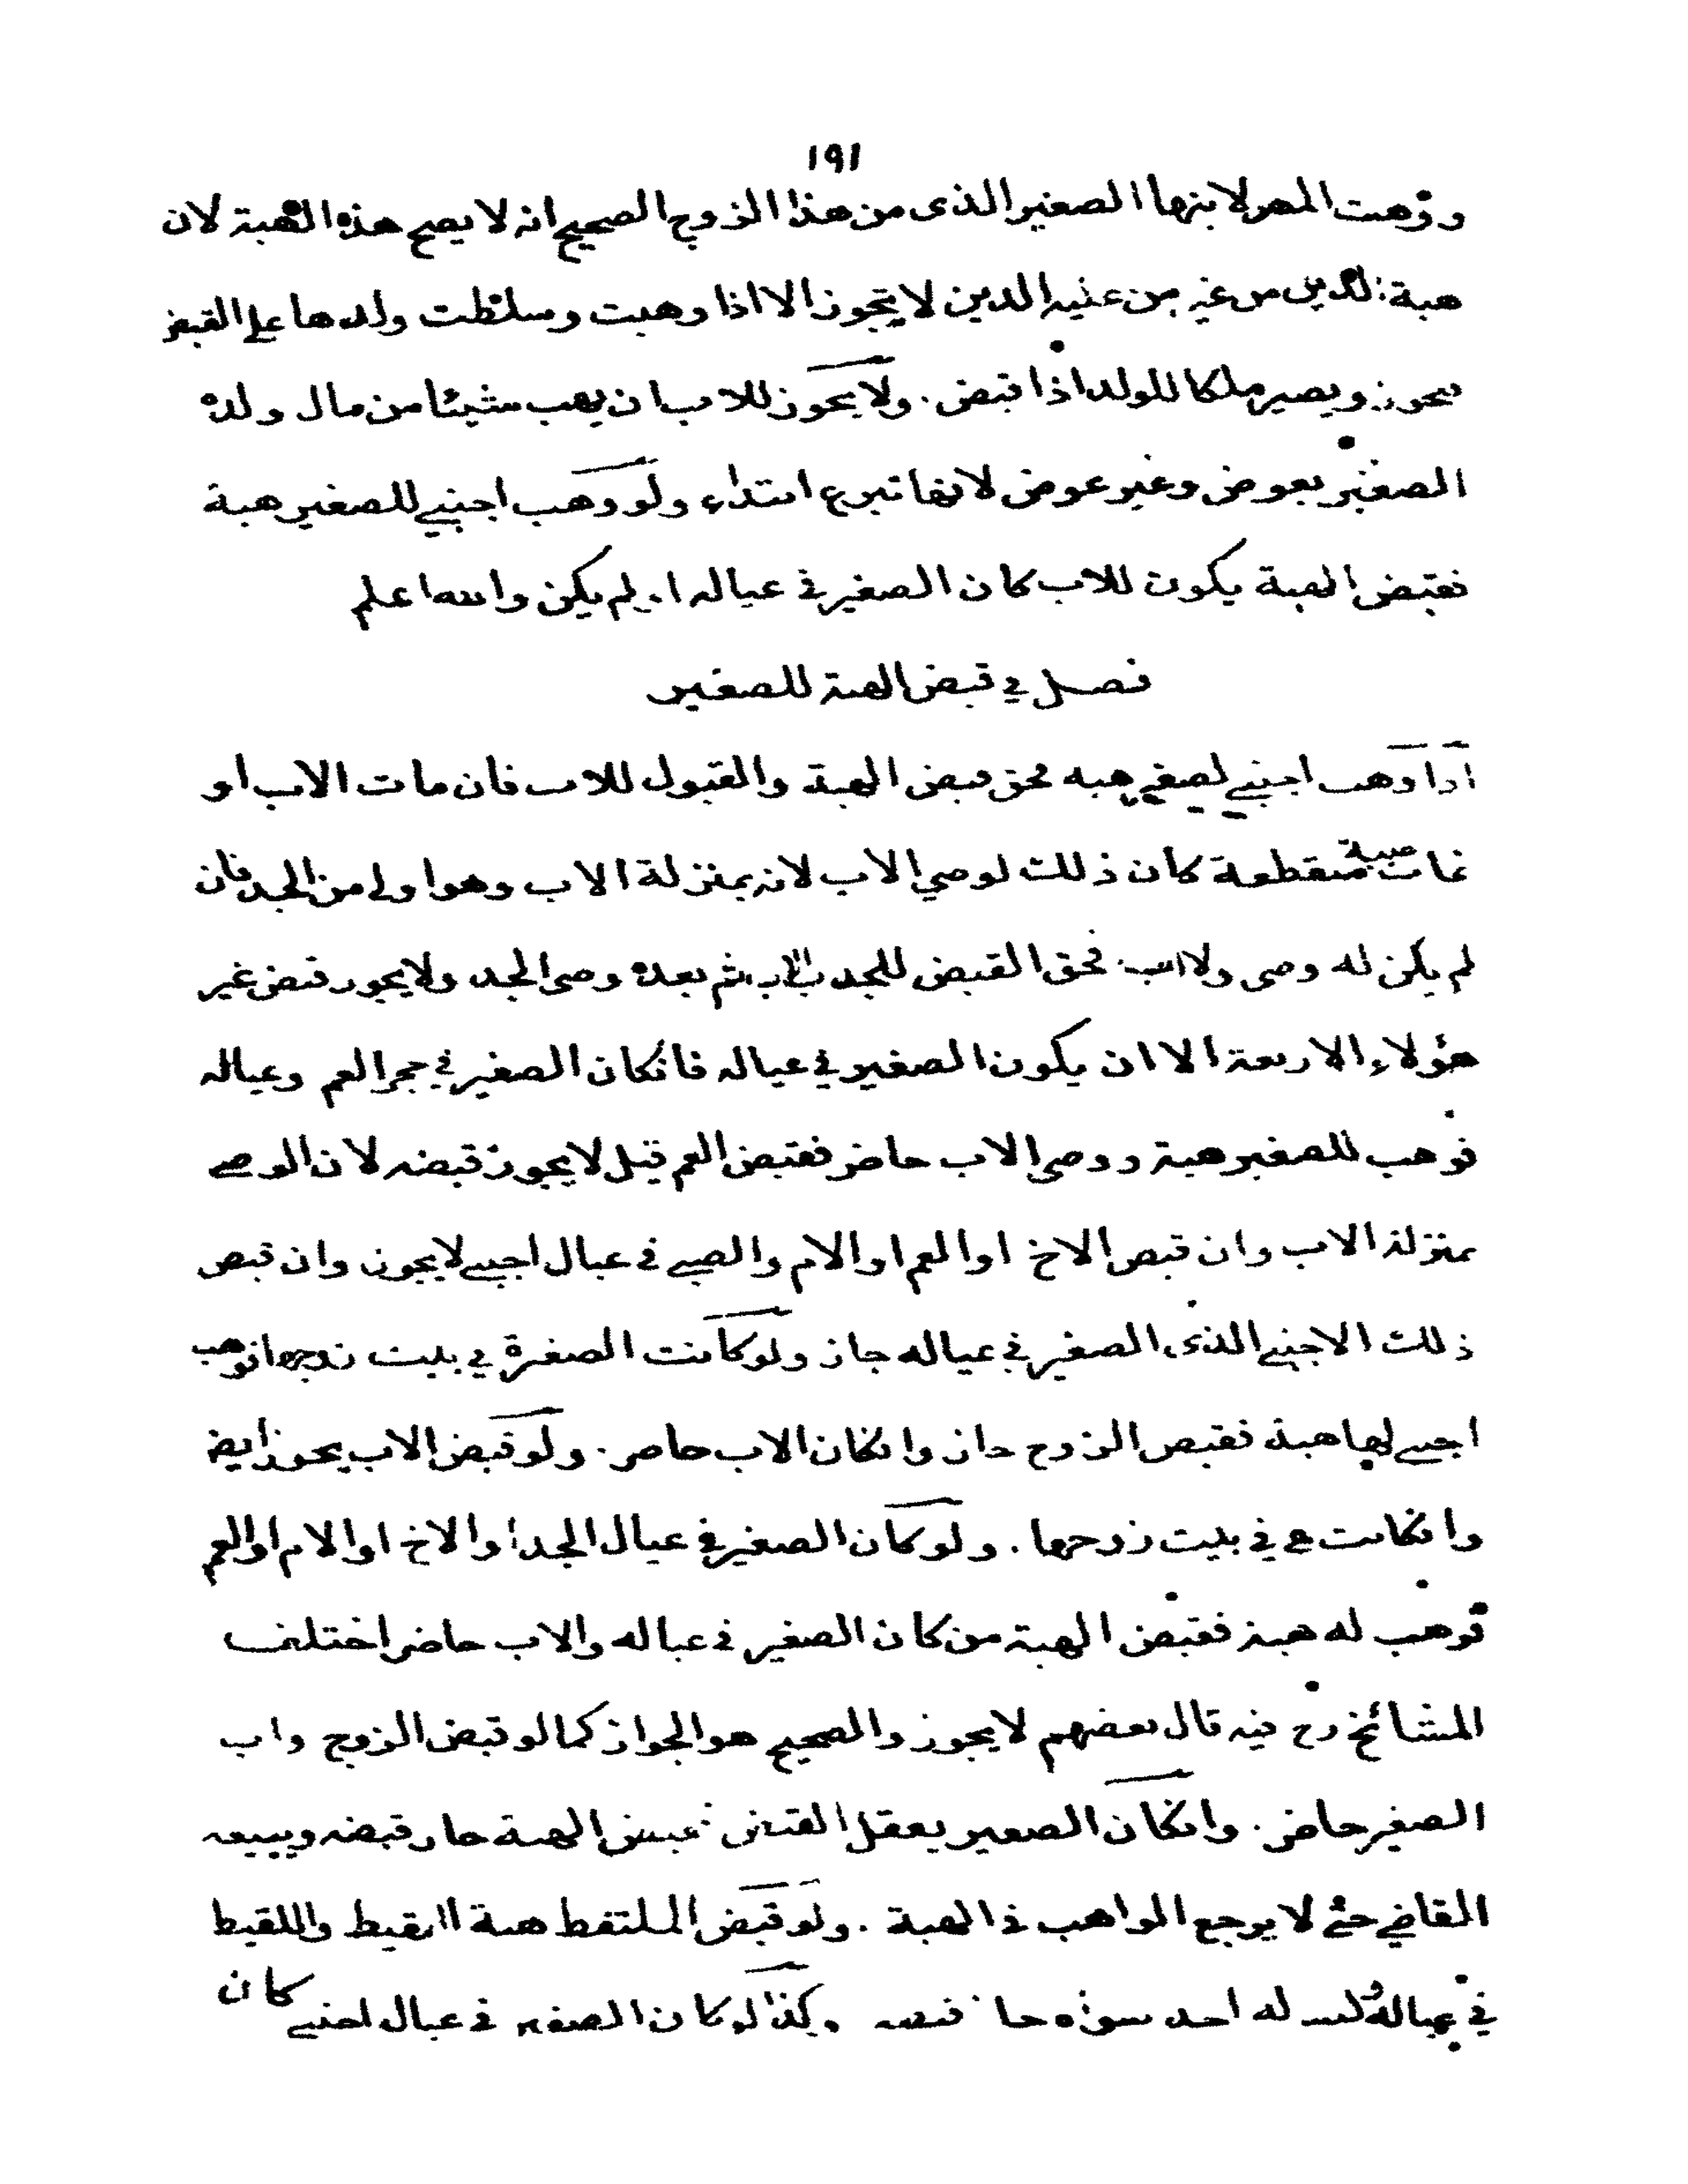 ١٩١
ووهبت المهر لابنها الصغير الذى من هذا الزوج الصحيح انه لا يصح هذه الهبة لان
هبة الدين من غير من عليه الدين لا يجوز الا اذا وهبت وسلطت ولدها على القبض
يجوز ويصير ملكا للولد اذا قبض . ولا يجوز للاب ان يهب شيئا من مال ولده
الصغير بعوض وغير عوض لانها تبرع ابتداء ولو وهب اجنبي للصغير هبة
فقبض الهبة يكون للاب كان الصغير في عياله او لم يكن والله اعلم
فصل في قبض الهبة للصغير
اذا وهب اجنبي لصغير هبه فحق قبض الهبة والقبول للاب فان مات الاب او
غاب غيبة منقطعة كان ذلك لوصي الاب لانه بمنزلة الاب وهو اولى من الجد فان
لم يكن له وصى ولا اب فحق القبض للجد اب الاب ثم بعده وصى الجد ولا يجوز قبض غير
هؤلاء الاربعة الا ان يكون الصغير في عياله فانكان الصغير في حجر العم وعياله
فوهب للصغير هبة ووصى الاب حاضر فقبض العم قيل لا يجوز قبضه لان الوصي
بمنزلة الاب وان قبض الاخ او العم او الام والصبي في عيال اجنبي لا يجوز وان قبض
ذلك الاجنبي الذى الصغير في عياله جاز ولو كانت الصغرة في بيت زوجها فوهب
اجنبي لها هبة فقبض الزوج جاز وانكان الاب حاضر . ولو قبض الاب يجوز ايضا
وانكانت هي في بيت زوجها . ولو كان الصغير في عيال الجد او الاخ او الام او العم
فوهب له هبة فقبض الهبة من كان الصغير في عياله والاب حاضر اختلف
المشائخ رح فيه قال بعضهم لا يجوز والصحيح هو الجواز كما لو قبض الزوج واب
الصغير حاضر . وانكان الصغير يعقل القبض فقبض الهبة جاز قبضه ويبيعه
القاضي حتى لا يرجع الواهب في الهبة . ولو قبض الملتقط هبة اللقيط واللقيط
في عياله وليس له احد سواه جاز قبضه وكذا لو كان الصغير في عيال اجنبي كان